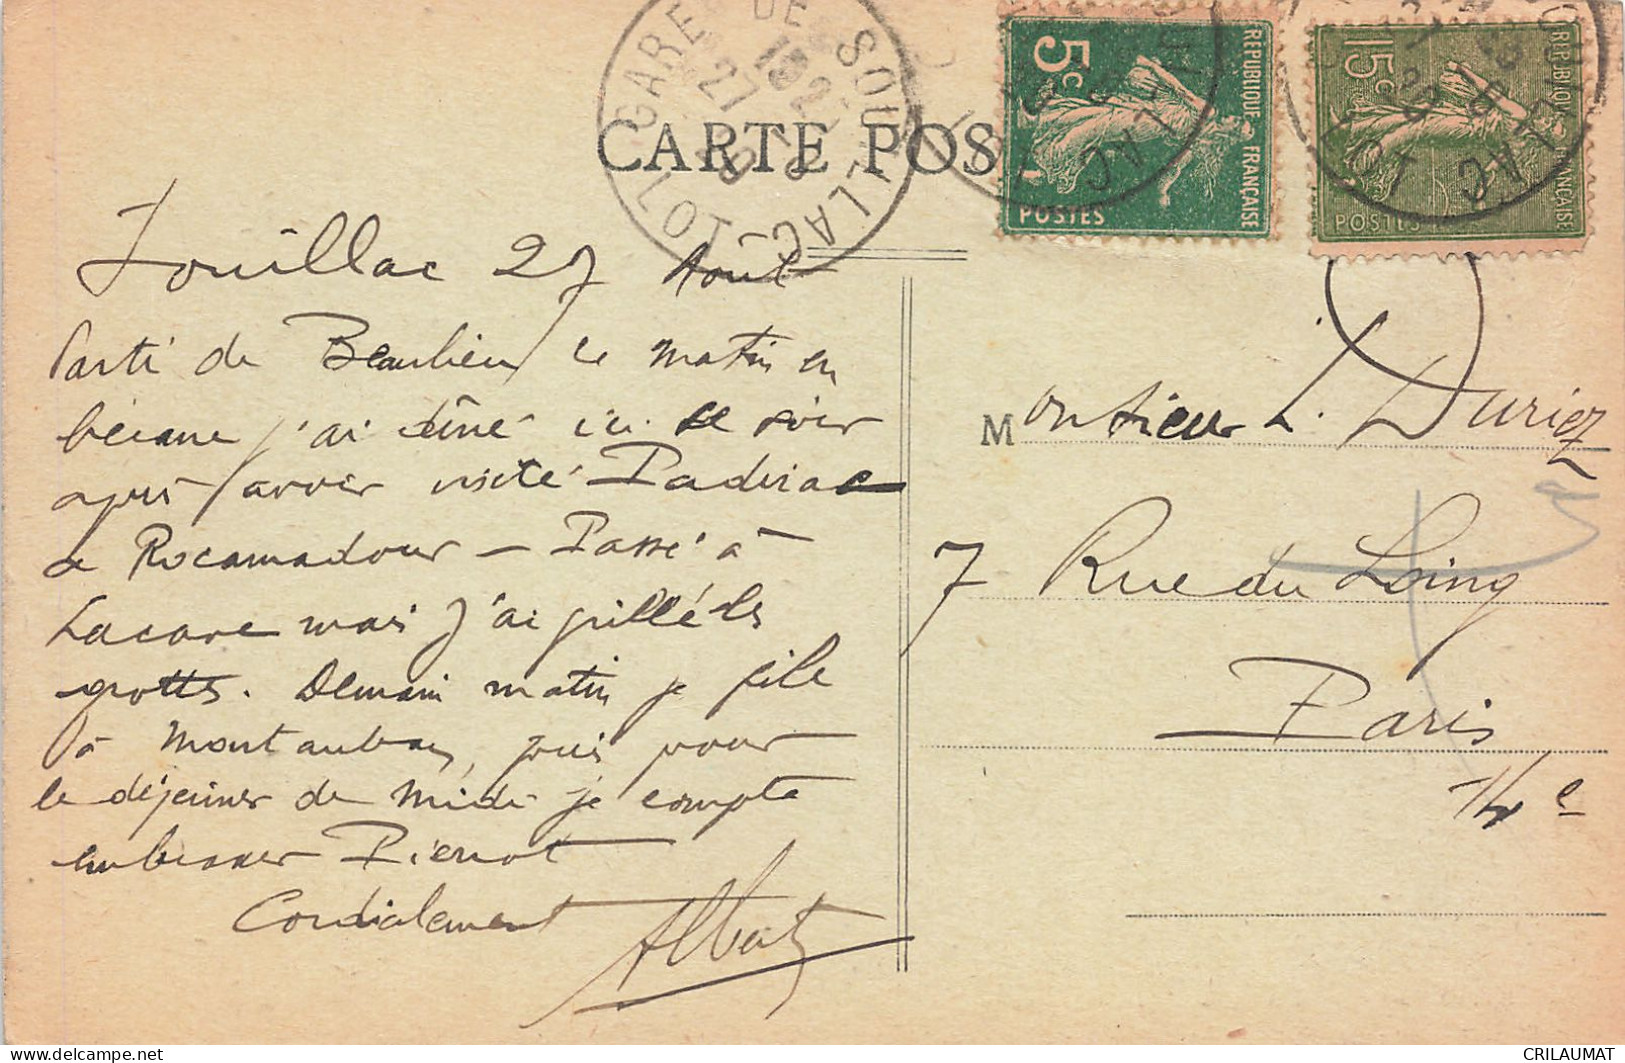 GARE DE SOUILLAC LOT
27
CARTE POS
RÉPUBLIQUE FRANÇAISE
5c
POSTES
RÉPUBLIQUE FRANÇAISE
15c
POSTES
LAC LOT
Souillac 27 Août
Parti de Beaulieu ce matin en
bécane j'ai dîné ici ce soir
après avoir visité Padirac
& Rocamadour — Passé à
Lacave mais j'ai grillé les
grottes. Demain matin je file
à Montauban, puis pour
le déjeuner de midi je compte
embrasser Pierrot
Cordialement
Albert
Monsieur L. Duriez
7 Rue du Loing
Paris
14e
CRILAUMAT
delcampe.net